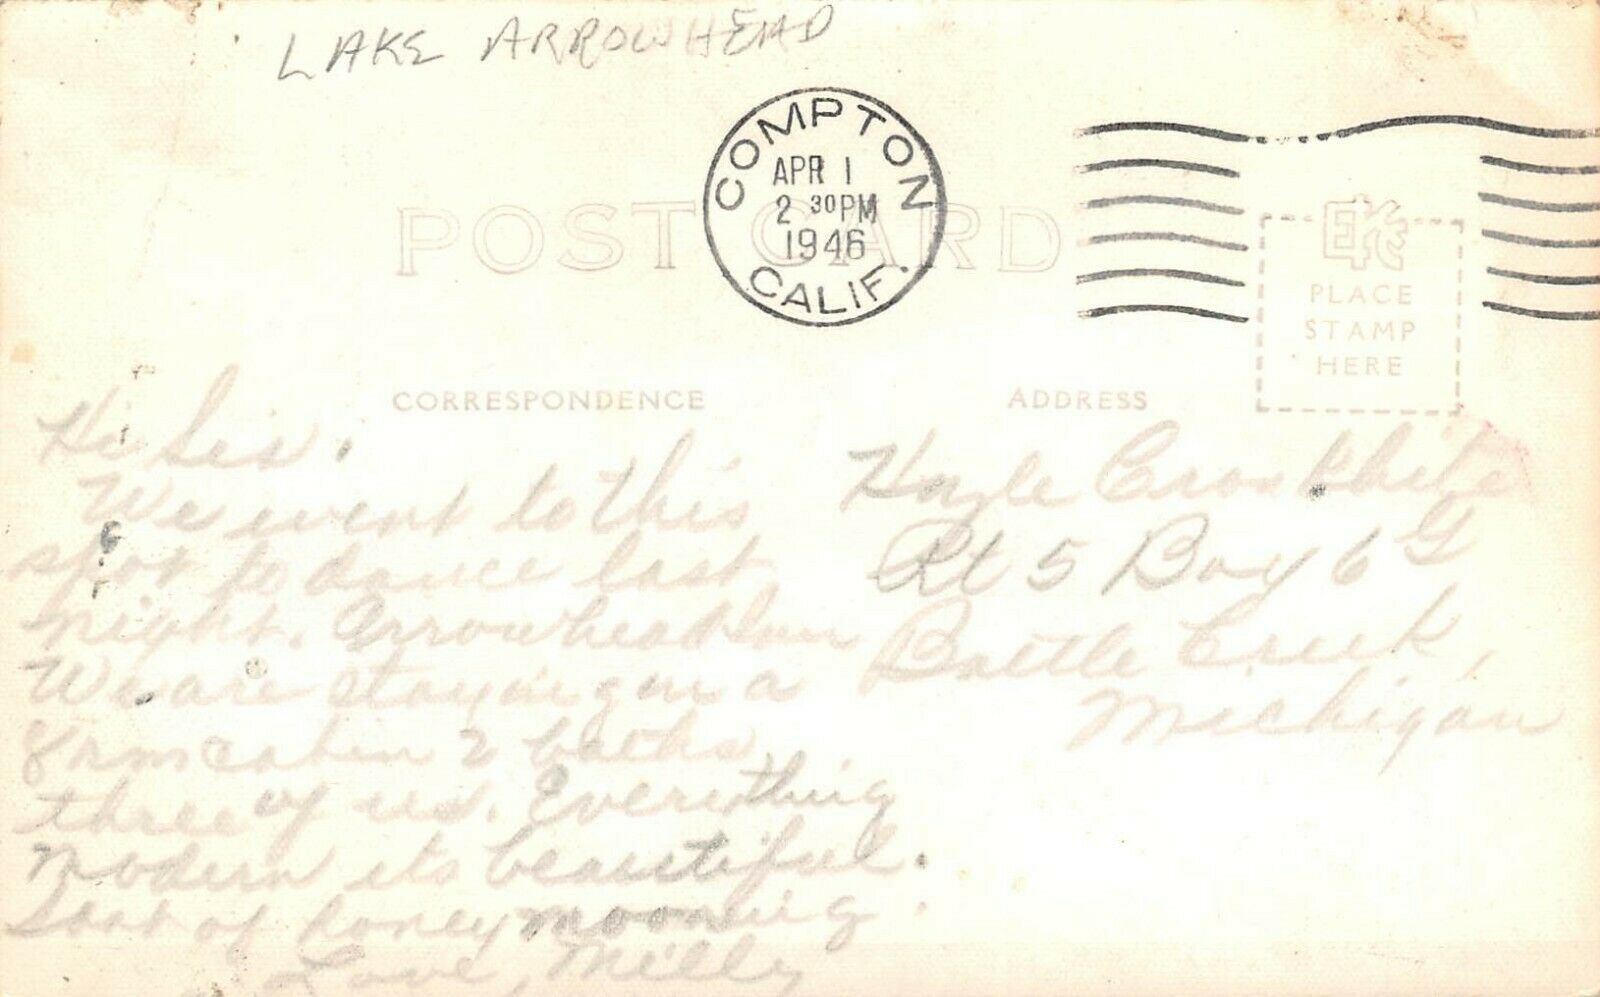 LAKE ARROWHEAD
COMPTON
APR 1
2 30 PM
1946
CALIF.
POST CARD
EKC
PLACE
STAMP
HERE
CORRESPONDENCE
ADDRESS
Hi Sis.
We went to this
spot to dance last
night. Arrowhead Inn
We are staying in a
rm cabin 2 baths
three of us. Everything
modern its beautiful.
Sort of honey mooning.
Love, Milly
Rt 5 Box 6 G
Battle Creek,
Michigan